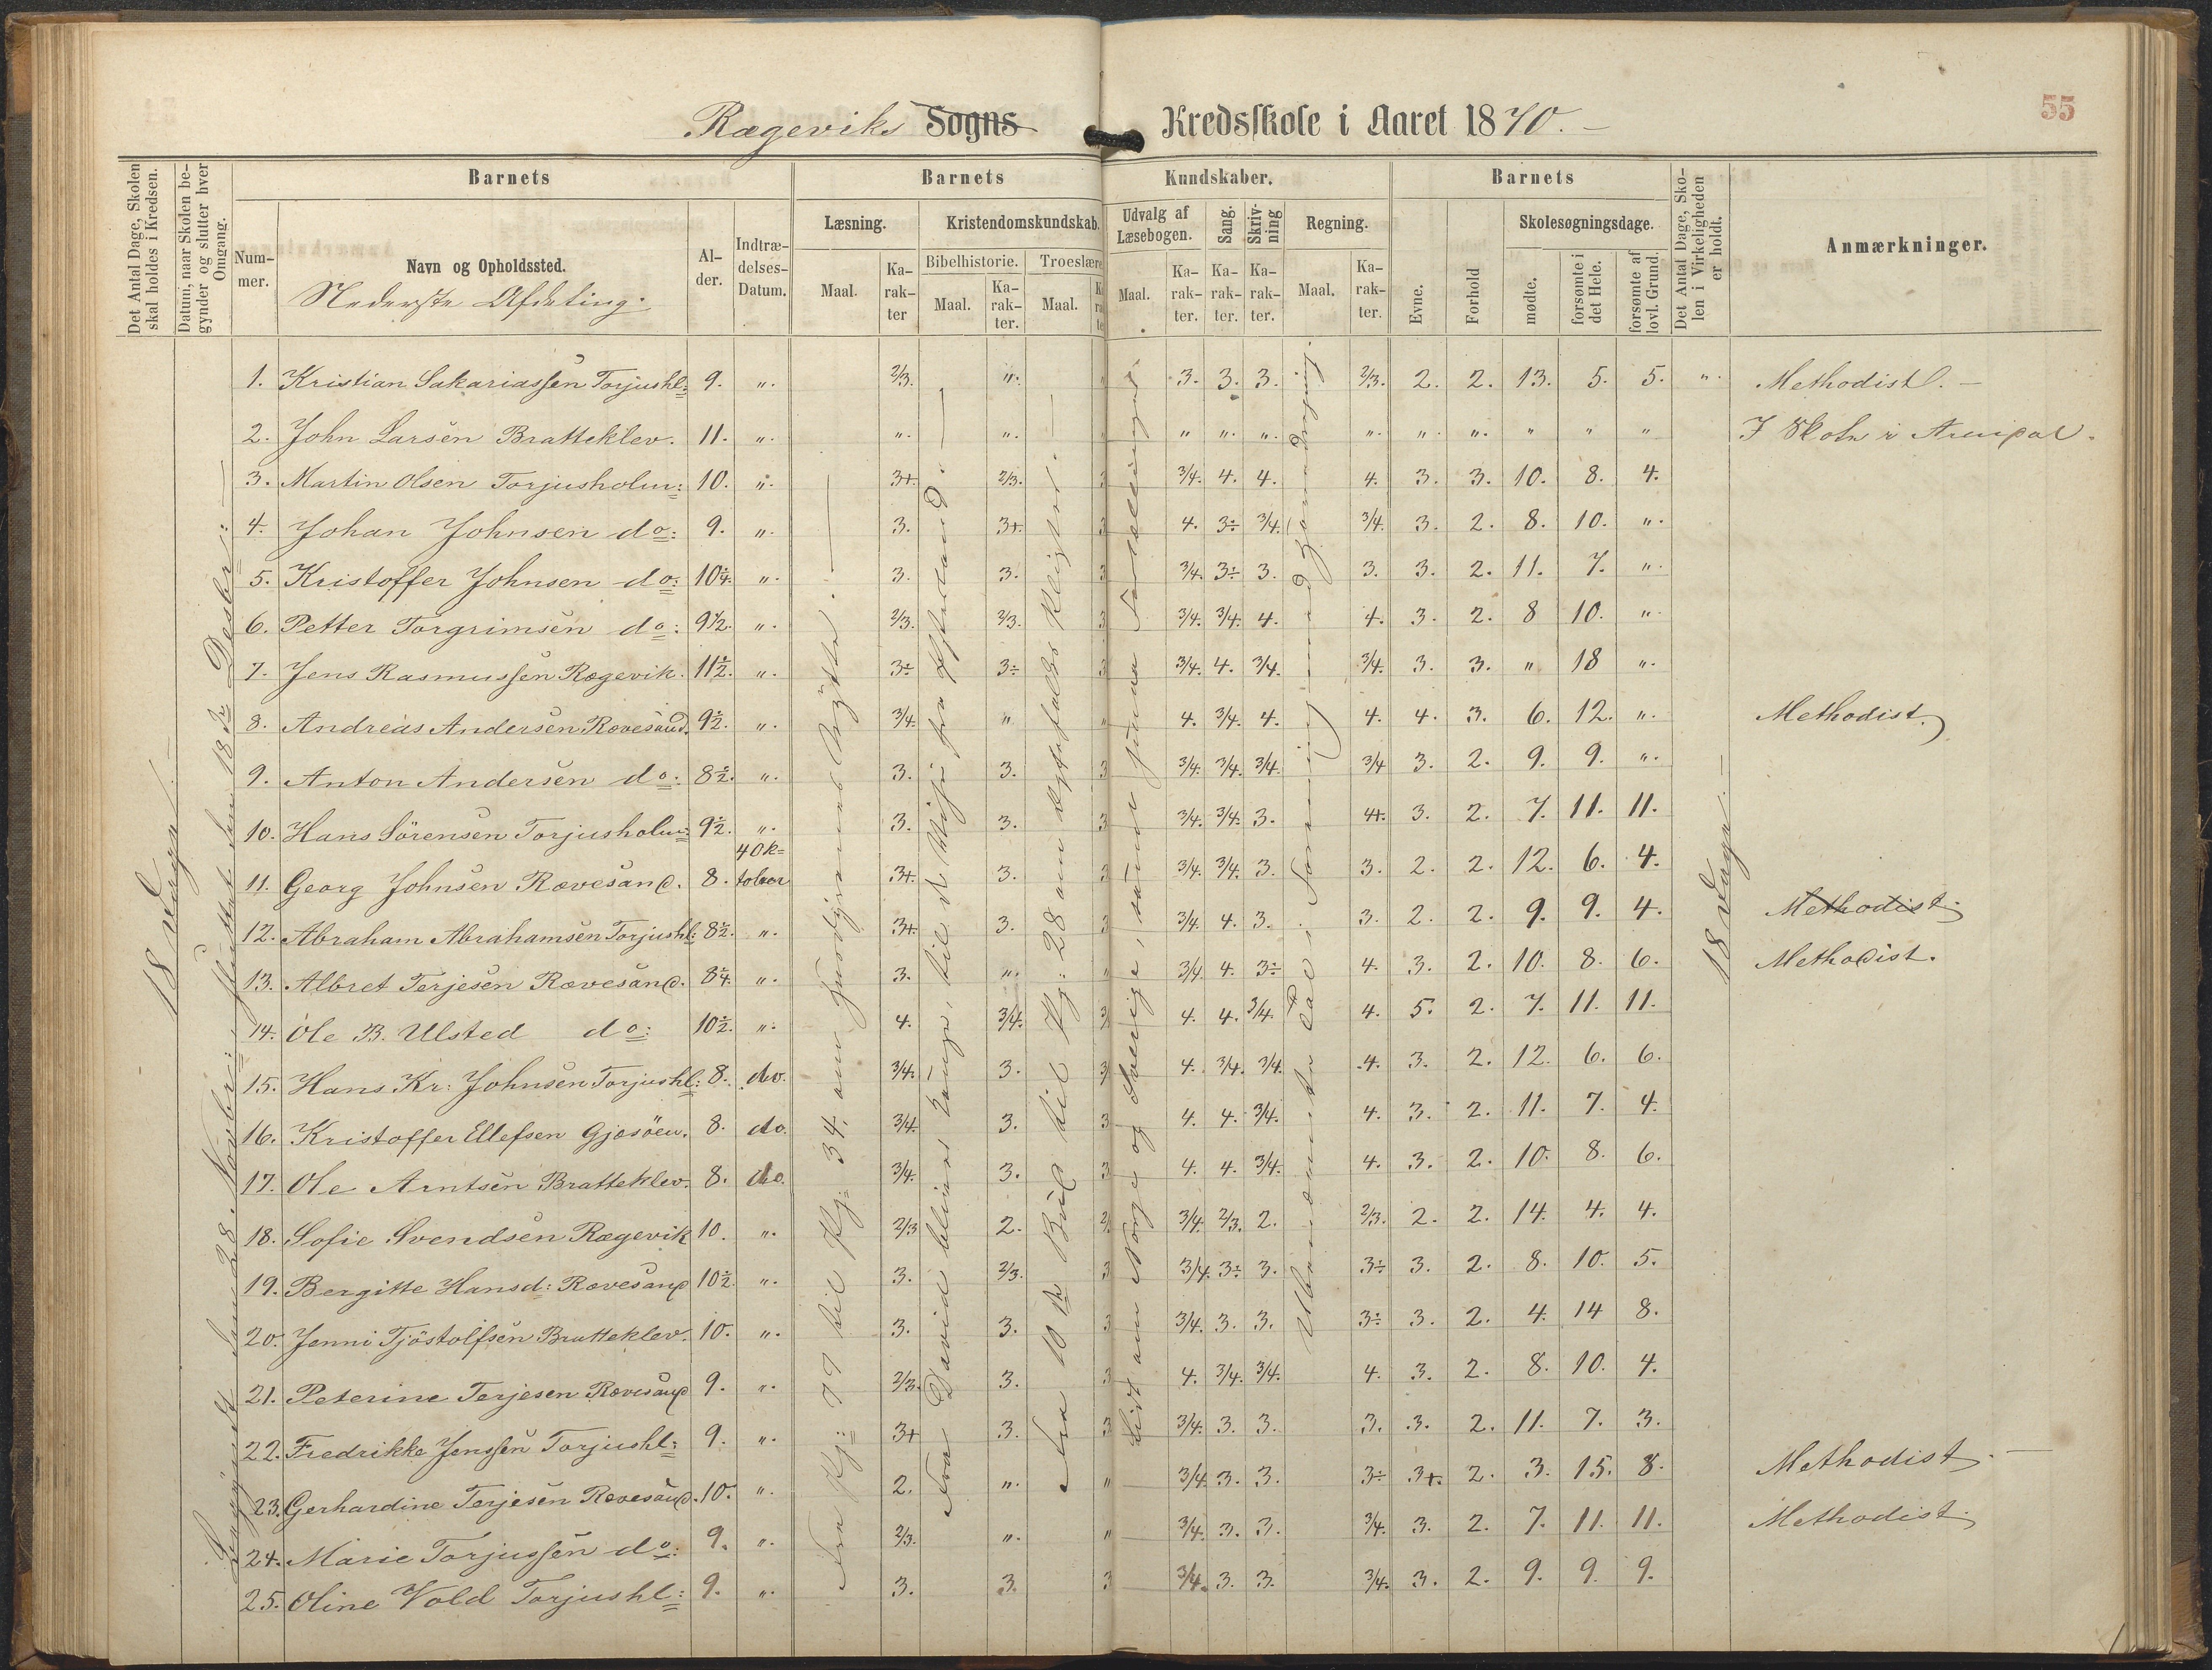 55
Rægeviks Sogns Kredsskole i Aaret 1870.-
Det Antal Dage, Skolen skal holdes i Kredsen.
Datum, naar Skolen begynder og slutter hver Omgang.
Barnets Barnets Kundskaber. Barnets
Det Antal Dage, Skolen i Virkeligheden er holdt.
Anmærkninger.
Nummer. Navn og Opholdssted. Alder. Indtrædelses-Datum.
Nederste Afdeling.
Læsning. Kristendomskundskab. Udvalg af Læsebogen. Sang. Skrivning Regning. Evne. Forhold Skolesøgningsdage.
Bibelhistorie. Troeslære
Maal. Karakter Maal. Karakter. Maal. Maal. Karakter. Karakter. Karakter. Maal. Karakter. mødte. forsømte i det Hele. forsømte af lovl. Grund.
18 Dage.
18 Dage.
1. Kristian Sakariassen Torjushl: 9. ". 2/3. ". " 3. 3. 3. 2/3. 2. 2. 13. 5. 5. ". Methodist.-
2. John Larsen Bratteklev. 11. ". ". ". " ". ". ". ". ". " " " I Skole i Arendal.
3. Martin Olsen Torjusholm: 10. ". 3+. 2/3. 3 3/4. 4. 4. 4. 3. 3. 10. 8. 4.
4. Johan Johnsen do: 9. ". 3. 3+. 3 4. 3÷ 3/4. 3/4. 3. 2. 8. 10. ".
5. Kristoffer Johnsen do: 10 1/4. ". 3. 3. 3 3/4. 3÷ 3. 3. 3. 2. 11. 7. ".
6. Petter Torgrimsen do: 9 1/2. ". 2/3. 2/3. 3 3/4. 3/4. 4. 4. 3. 2. 8 10. ".
7. Jens Rasmussen Rægevik. 11 1/2. ". 3÷ 3÷ 3 3/4. 4. 3/4. 3/4. 3. 3. " 18 ".
8. Andreas Andersen Rævesand. 9 1/2. ". 3/4. " " 4. 3/4. 4. 4. 4. 3. 6. 12. ". Methodist.
9. Anton Andersen do: 8 1/2. ". 3. 3. 3 3/4. 3/4. 3/4. 3/4 3. 2. 9. 9. ".
10. Hans Sörensen Torjusholm: 9 1/2. ". 3. 3. 3 3/4. 3/4. 3. 4+. 3. 2. 7. 11. 11.
11. Georg Johnsen Rævesand. 8. 4 Oktober 3+. 3. 3 3/4. 3/4. 3. 3. 2. 2. 12. 6. 4.
12. Abraham Abrahamsen Torjushl: 8 1/2. ". 3+. 3. 3 3/4. 4. 3. 3. 2. 2. 9. 9. 4. Methodist.
13. Albret Terjesen Rævesand. 8 1/4. ". 3. ". " 3/4. 4. 3÷ 4. 3. 2. 10. 8. 6. Methodist.
14. Ole B. Ulsted do: 10 1/2. ". 4. 3/4. 3/ 4. 4. 3/4. 4. 5. 2. 7. 11. 11.
15. Hans Kr: Johnsen Torjushl: 8. do. 3/4. 3. 3/ 4. 3/4. 3/4. 4. 3. 2. 12. 6. 6.
16. Kristoffer Ellefsen Gjæsöen. 8. do. 3/4. 3. 3 4. 4. 3/4. 4. 3. 2. 11. 7. 4.
17. Ole Arntsen Bratteklev. 8. do. 3/4. 3. 3 4. 4. 3/4. 4. 3. 2. 10. 8. 6.
18. Sofie Svendsen Rægevik 10. ". 2/3 2. 2/ 3/4. 2/3. 2. 2/3. 2. 2. 14. 4. 4.
19. Bergitte Hansd: Rævesand 10 1/2. ". 3. 2/3. 3 3/4. 3÷ 3. 3÷ 3. 2. 8. 10. 5.
20. Jenni Tjöstolfsen Bratteklev. 10. ". 3. 3. 3 3/4. 3. 3. 3÷ 3. 2. 4. 14 8.
21. Peterine Terjesen Rævesand 9. ". 2/3. 3. 3 4. 3/4. 3/4. 4. 3. 2. 8. 10. 4.
22. Fredrikke Jenssen Torjushl: 9. ". 3+ 3. 3 3/4. 3. 3. 3. 3. 2. 11. 7. 3.
23. Gerhardine Terjesen Rævesand. 10. ". 2. ". " 3/4. 3. 3. 3÷ 3+. 2. 3. 15. 8. Methodist.-
24. Marie Torjussen do: 9. ". 2/3. ". " 3/4. 3. 3. 3/4. 3. 2. 7. 11. 11. Methodist.
25. Oline Vold Torjushl: 9. ". 3. 3. 3 3/4. 3. 3. 3/4. 3. 2. 9. 9. 9.
den 28. Novbr: sluttet den 18de Desbr:
Fra Pg: 99 til Pg: 34 om Husdyrenes Nytte.
Fra David bliver Konge, til det Nye fra
Fra 10de Bud til Pg: 28 om Ægtefolks Pligter.
Lidt om Norge og Sverige, samt